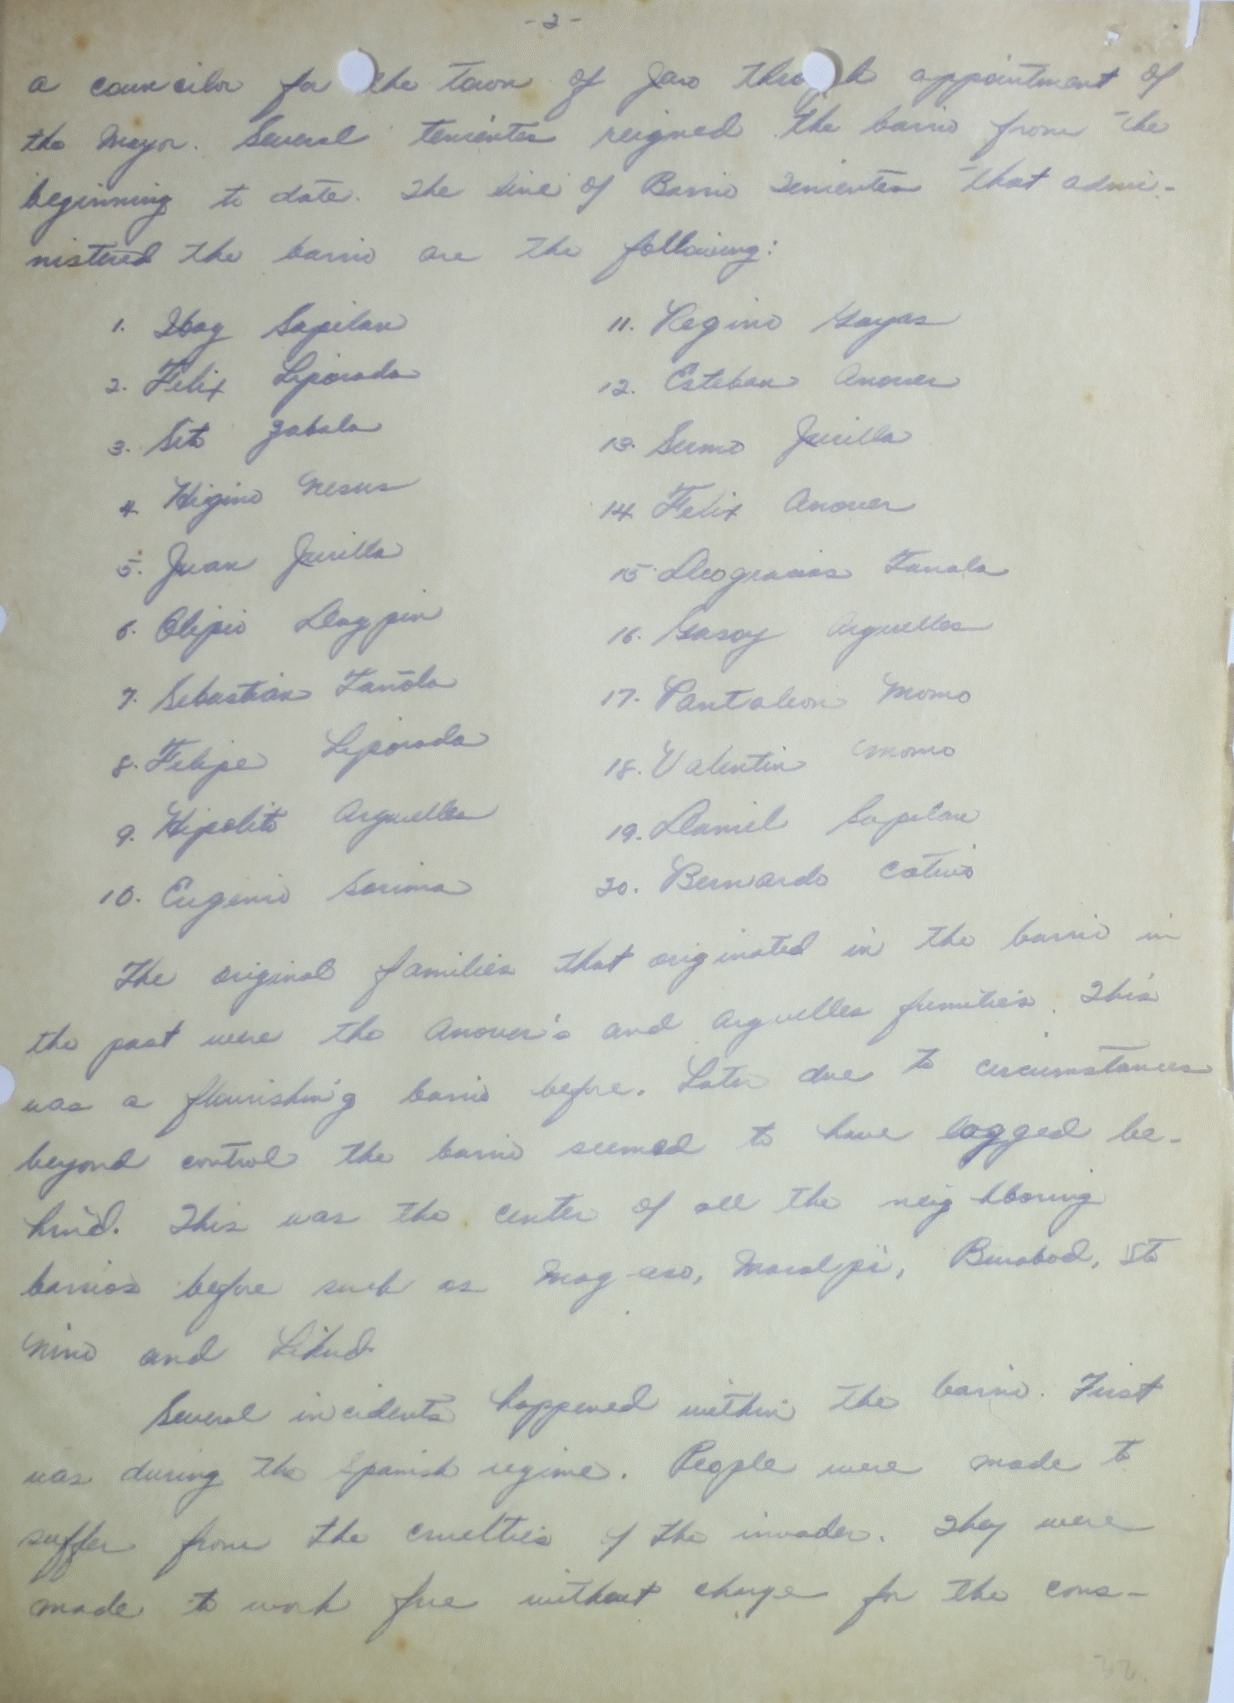 -2-
a councilor for the town of Jaro through appointment of
the Mayor. Several tenientes reigned the barrio from the
beginning to date. The line of Barrio Tenientes that admi-
nistered the barrio are the following:
1. Ibag Sapilan
2. Felix Liporada
3. Sito Zabala
4. Higino Nesus
5. Juan Jurilla
6. Olipio Dagpin
7. Sebastian Tañola
8. Felipe Liporada
9. Hipolito Arguelles
10. Eugenio Sorima
11. Regino Gayas
12. Esteban Anover
13. Sumo Jurilla
14. Felix Anover
15. Deogracias Tanala
16. Gasoy Arguelles
17. Pantaleon Momo
18. Valentin Momo
19. Daniel Sapilan
20. Bernardo Cotiio
The original families that originated in the barrio in
the past were the Anover's and Arguelles families. This
was a flourishing barrio before. Later due to circumstances
beyond control the barrio seemed to have lagged be-
hind. This was the center of all the neighboring
barrios before such as Mag-aso, Macalpi, Burabod, Sto
Nino and Likud
Several incidents happened within the barrio. First
was during the Spanish regime. People were made to
suffer from the cruelties of the invader. They were
made to work free without charge for the cons-
32.